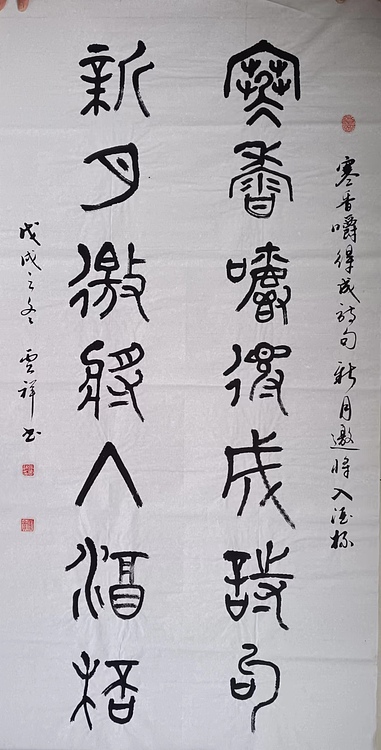 寒香嚼得成詩句 新月邀將入酒杯
寒香嚼得成詩句
新月邀將入酒杯
戊戌之冬 雲祥書